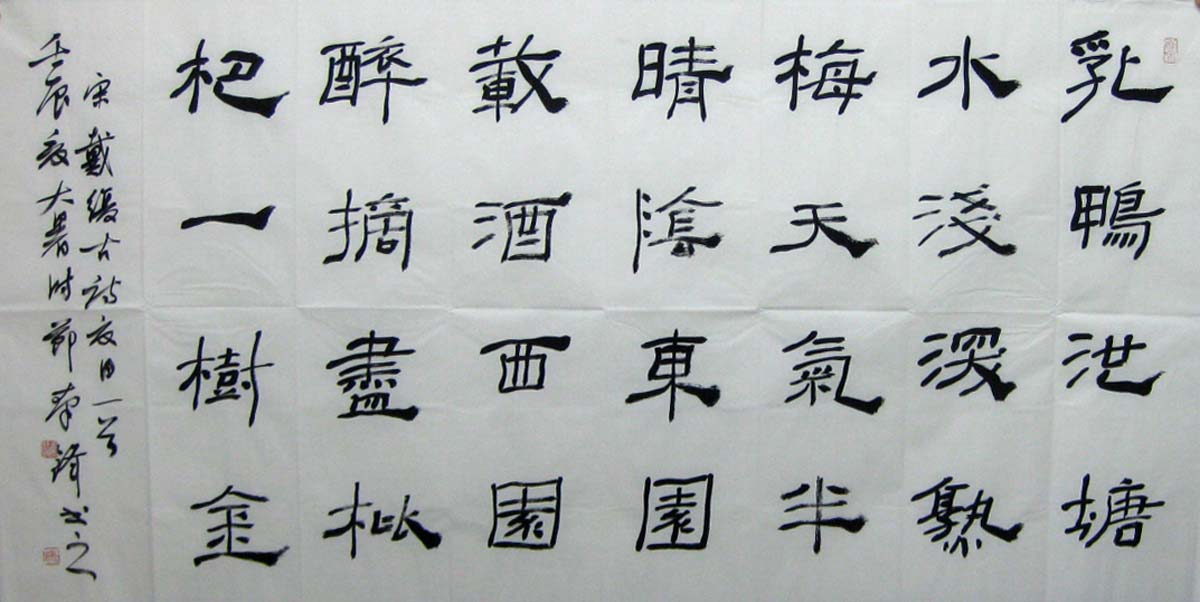 乳鴨池塘
水淺深熟
梅天氣半
晴陰東園
載酒西園
醉摘盡枇
杷一樹金
宋戴復古诗夏日一首
壬辰夏大暑时節 锋书之